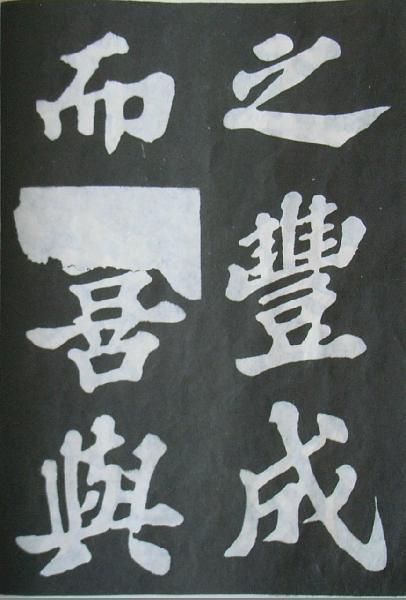 之豐成
而喜與